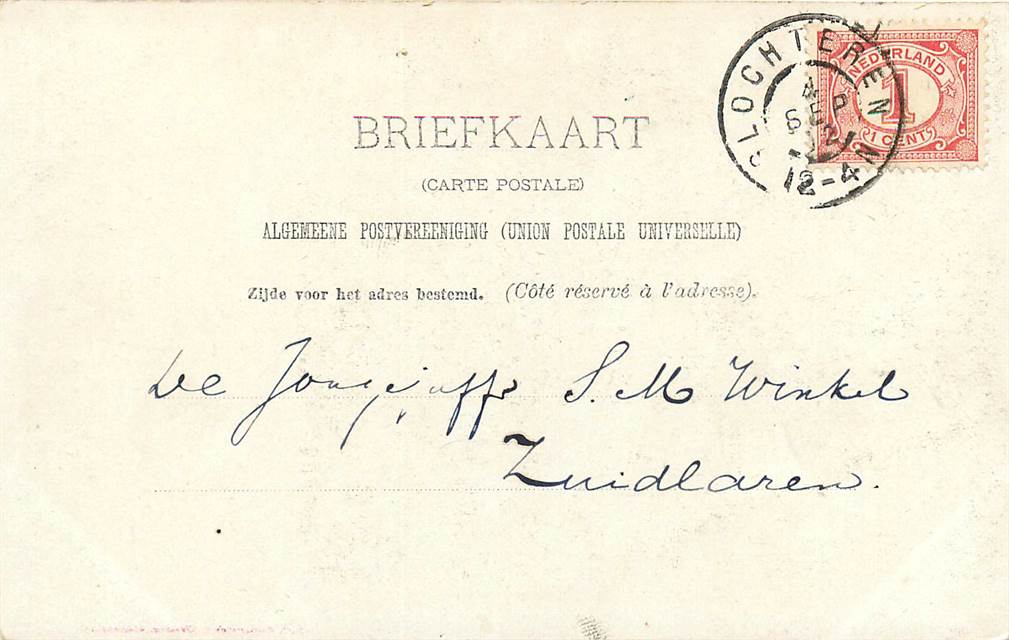 BRIEFKAART
(CARTE POSTALE)
ALGEMEENE POSTVEREENIGING (UNION POSTALE UNIVERSELLE)
Zijde voor het adres bestemd. (Côté réservé à l'adresse).
SLOCHTEREN
12-4 N
NEDERLAND
1
1 CENT
De Jongejuffr S. M Winkel
Zuidlaren.